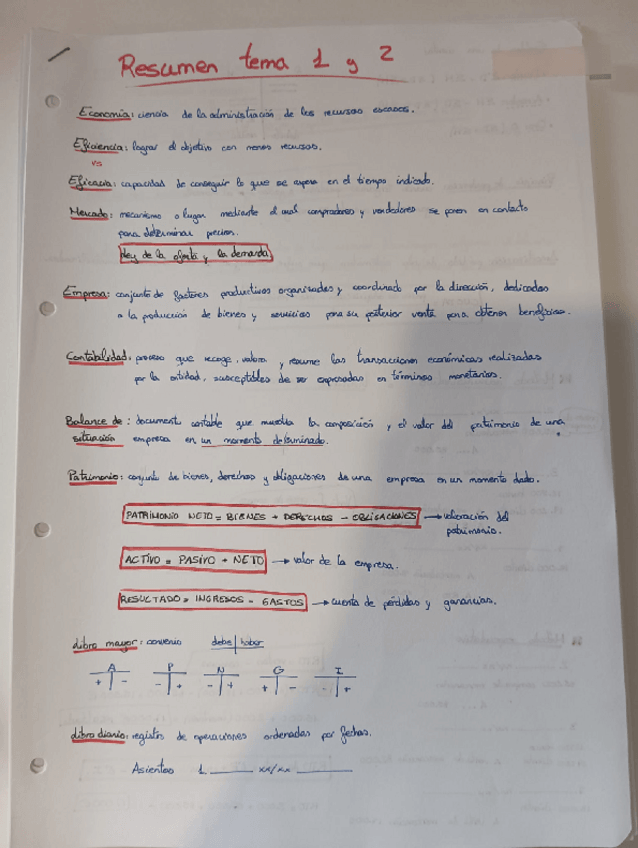 Resumen tema 1 y 2
Economía: ciencia de la administración de los recursos escasos.
Eficiencia: lograr el objetivo con menos recursos.
vs
Eficacia: capacidad de conseguir lo que se espera en el tiempo indicado.
Mercado: mecanismo o lugar mediante el cual compradores y vendedores se ponen en contacto
para determinar precios.
Ley de la oferta y la demanda
Empresa: conjunto de factores productivos organizados y coordinados por la dirección, dedicados
a la producción de bienes y servicios para su posterior venta para obtener beneficios.
Contabilidad: proceso que recoge, valora y resume las transacciones económicas realizadas
por la entidad, susceptibles de ser expresadas en términos monetarios.
Balance de: document contable que muestra la composición y el valor del patrimonio de una
situación empresa en un momento determinado.
Patrimonio: conjunto de bienes, derechos y obligaciones de una empresa en un momento dado.
PATRIMONIO NETO = BIENES + DERECHOS - OBLIGACIONES → valoración del
patrimonio.
ACTIVO = PASIVO + NETO → valor de la empresa.
RESULTADO = INGRESOS - GASTOS → cuenta de pérdidas y ganancias.
Libro mayor: convenio debe | haber
A P N G I
+ - - + - + + - - +
Libro diario: registro de operaciones ordenadas por fechas.
Asientos 1 ______ xx/xx ______